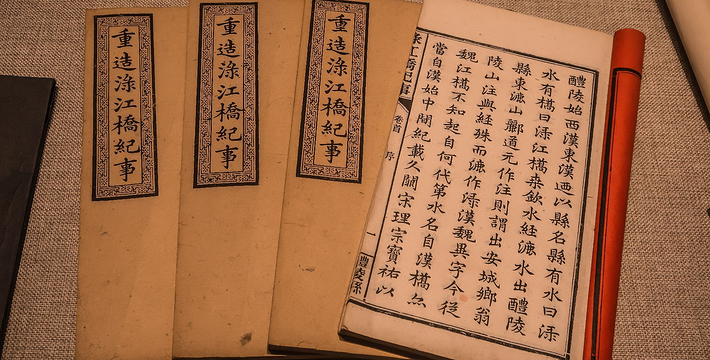 重造淥江橋紀事
重造淥江橋紀事
重造淥江橋紀事
醴陵始西漢東漢迺以縣名縣有水曰淥
水有橋曰淥江橋桑欽水經漉水出醴陵
縣東漉山酈道元作注則謂出安城鄉翁
陵山注與經殊而漉作淥漢魏異字今從
魏江橋不知起自何代第水名自漢橋亦
當自漢始中間紀載久闕宋理宗寶祐以
淥江橋紀事
卷首
序
一
醴陵縣